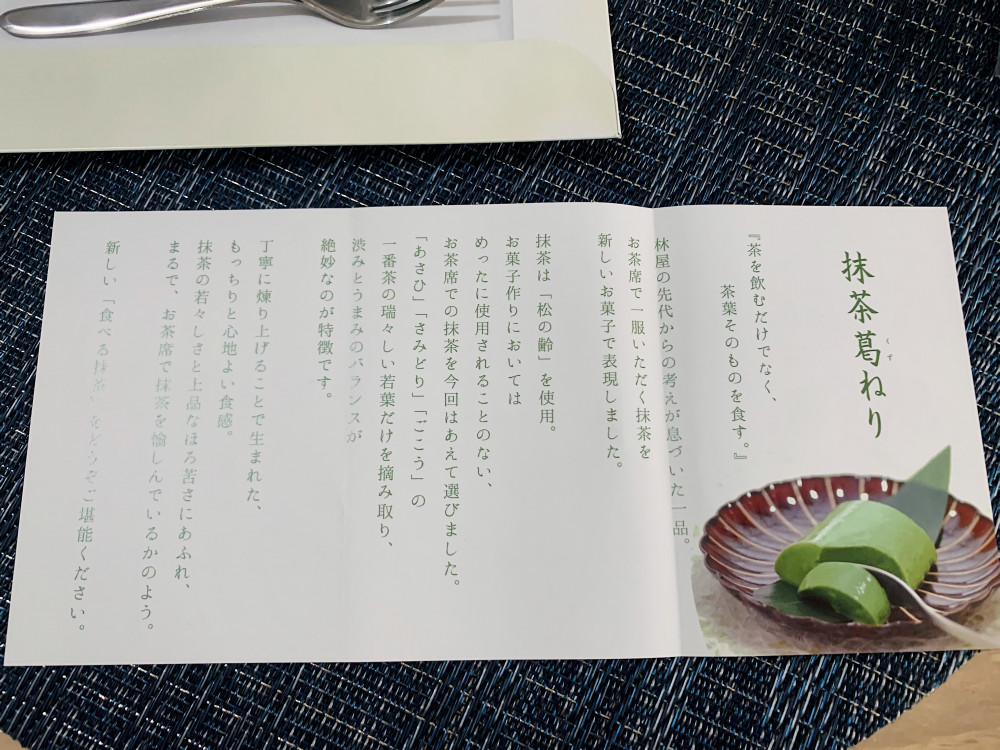 抹茶葛ねり
くず
『茶を飲むだけでなく、
茶葉そのものを食す。』
林屋の先代からの考えが息づいた一品。
お茶席で一服いただく抹茶を
新しいお菓子で表現しました。
抹茶は「松の齢」を使用。
お菓子作りにおいては
めったに使用されることのない、
お茶席での抹茶を今回はあえて選びました。
「あさひ」「さみどり」「ごこう」の
一番茶の瑞々しい若葉だけを摘み取り、
渋みとうまみのバランスが
絶妙なのが特徴です。
丁寧に煉り上げることで生まれた、
もっちりと心地よい食感。
抹茶の若々しさと上品なほろ苦さにあふれ、
まるで、お茶席で抹茶を愉しんでいるかのよう。
新しい「食べる抹茶」をどうぞご堪能ください。